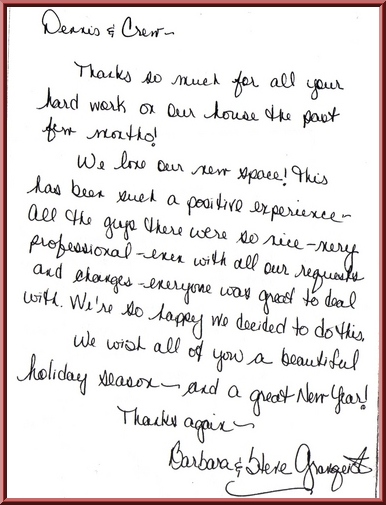 Dennis & Crew~
Thanks so much for all your
hard work on our house the past
few months!
We love our new space! This
has been such a positive experience~
All the guys there were so nice - very
professional - even with all our requests
and changes - everyone was great to deal
with. We're so happy we decided to do this.
We wish all of you a beautiful
holiday season ~ and a great New Year!
Thanks again ~
Barbara & Steve